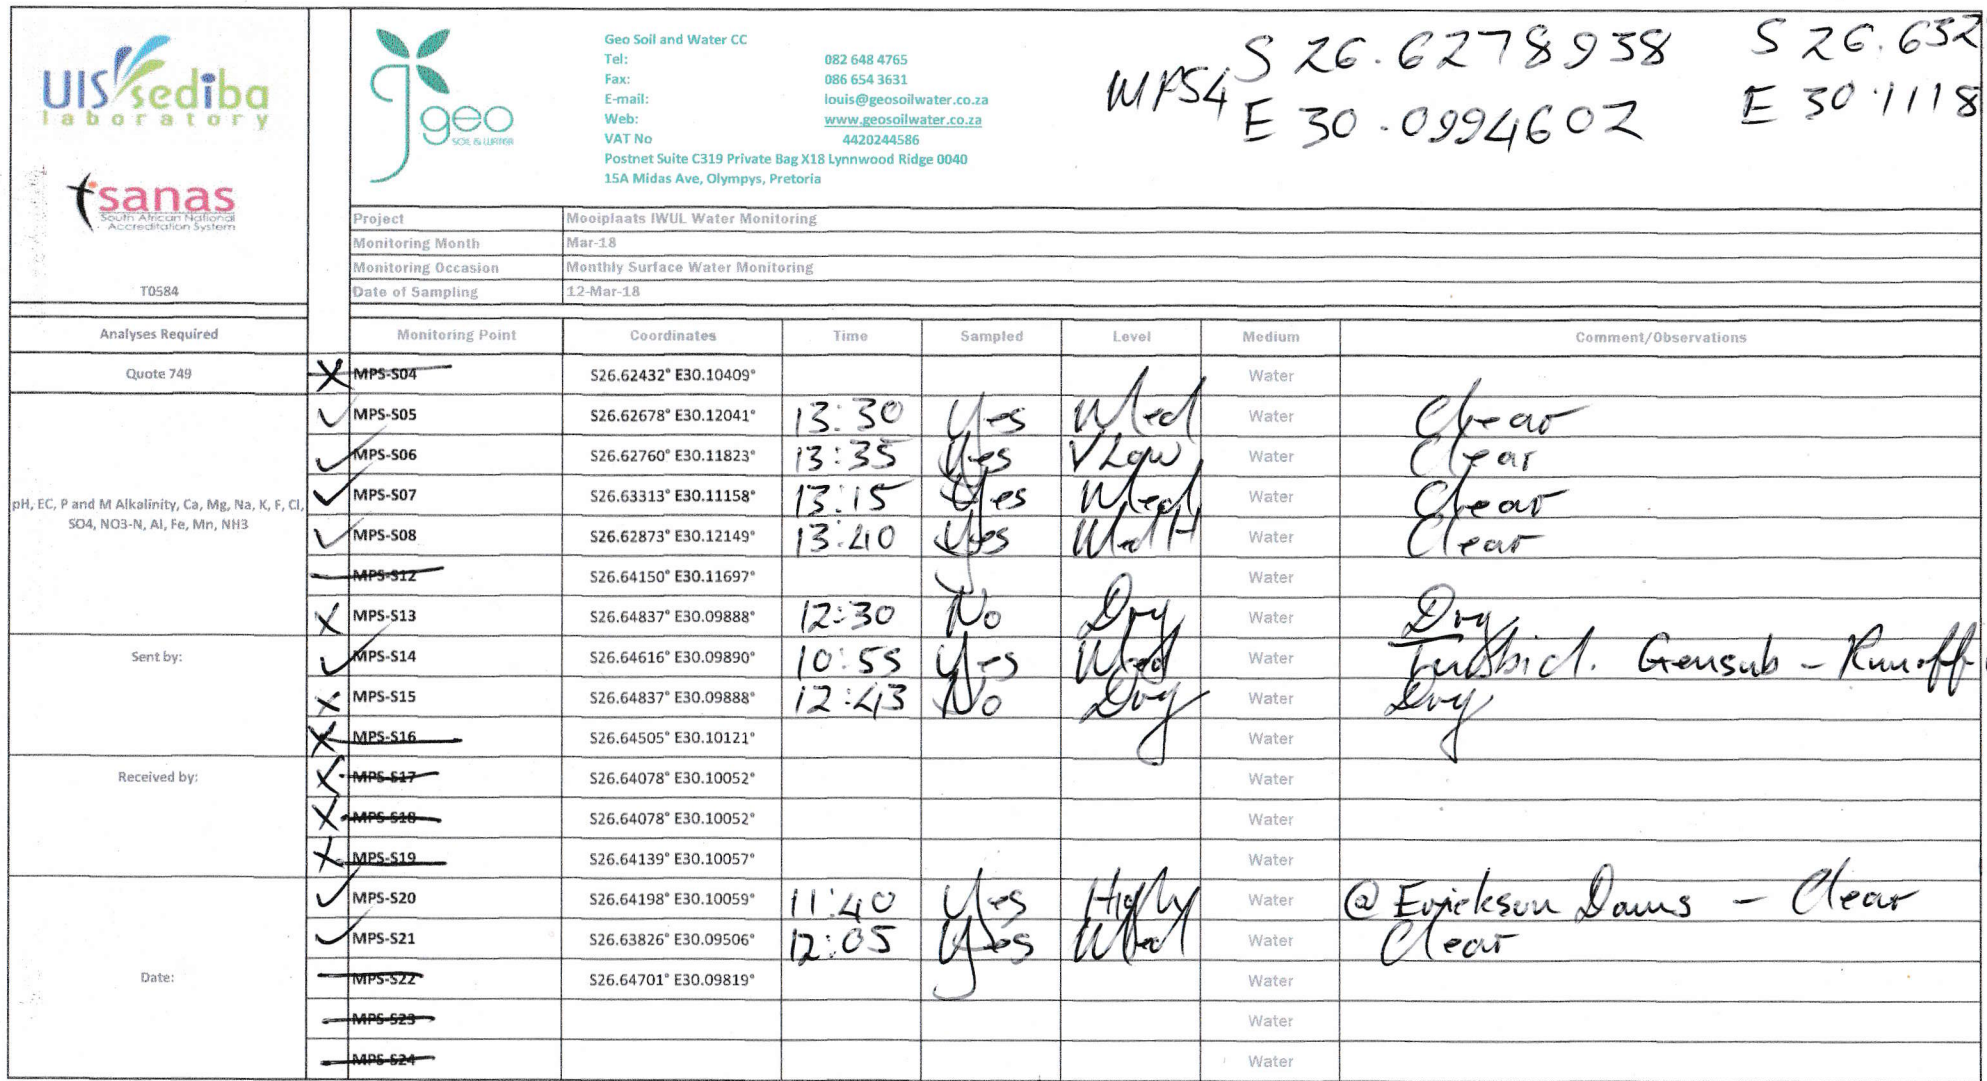 UIS sediba
laboratory
sanas
South African National
Accreditation System
T0584
geo
SOIL & WATER
Geo Soil and Water CC
Tel: 082 648 4765
Fax: 086 654 3631
E-mail: louis@geosoilwater.co.za
Web: www.geosoilwater.co.za
VAT No 4420244586
Postnet Suite C319 Private Bag X18 Lynnwood Ridge 0040
15A Midas Ave, Olympys, Pretoria
MPS4 S 26.6278938 S 26.632
E 30.0994602 E 30.1118
Project Mooiplaats IWUL Water Monitoring
Monitoring Month Mar-18
Monitoring Occasion Monthly Surface Water Monitoring
Date of Sampling 12-Mar-18
Analyses Required Monitoring Point Coordinates Time Sampled Level Medium Comment/Observations
Quote 749 MPS-S04 S26.62432° E30.10409° Water
MPS-S05 S26.62678° E30.12041° 13:30 Yes Med Water Clear
MPS-S06 S26.62760° E30.11823° 13:35 Yes V Low Water Clear
pH, EC, P and M Alkalinity, Ca, Mg, Na, K, F, Cl,
SO4, NO3-N, Al, Fe, Mn, NH3
MPS-S07 S26.63313° E30.11158° 13:15 Yes Med Water Clear
MPS-S08 S26.62873° E30.12149° 13:40 Yes Med H Water Clear
MPS-S12 S26.64150° E30.11697° Water
MPS-S13 S26.64837° E30.09888° 12:30 No Dry Water Dry
Sent by: MPS-S14 S26.64616° E30.09890° 10:55 Yes Med Water Turbid. Gensub - Runoff
MPS-S15 S26.64837° E30.09888° 12:43 No Dry Water Dry
MPS-S16 S26.64505° E30.10121° Water
Received by: MPS-S17 S26.64078° E30.10052° Water
MPS-S18 S26.64078° E30.10052° Water
MPS-S19 S26.64139° E30.10057° Water
MPS-S20 S26.64198° E30.10059° 11:40 Yes Water @ Erickson Dams - Clear
MPS-S21 S26.63826° E30.09506° 12:05 Yes Med Water Clear
Date: MPS-S22 S26.64701° E30.09819° Water
MPS-S23 Water
MPS-S24 Water